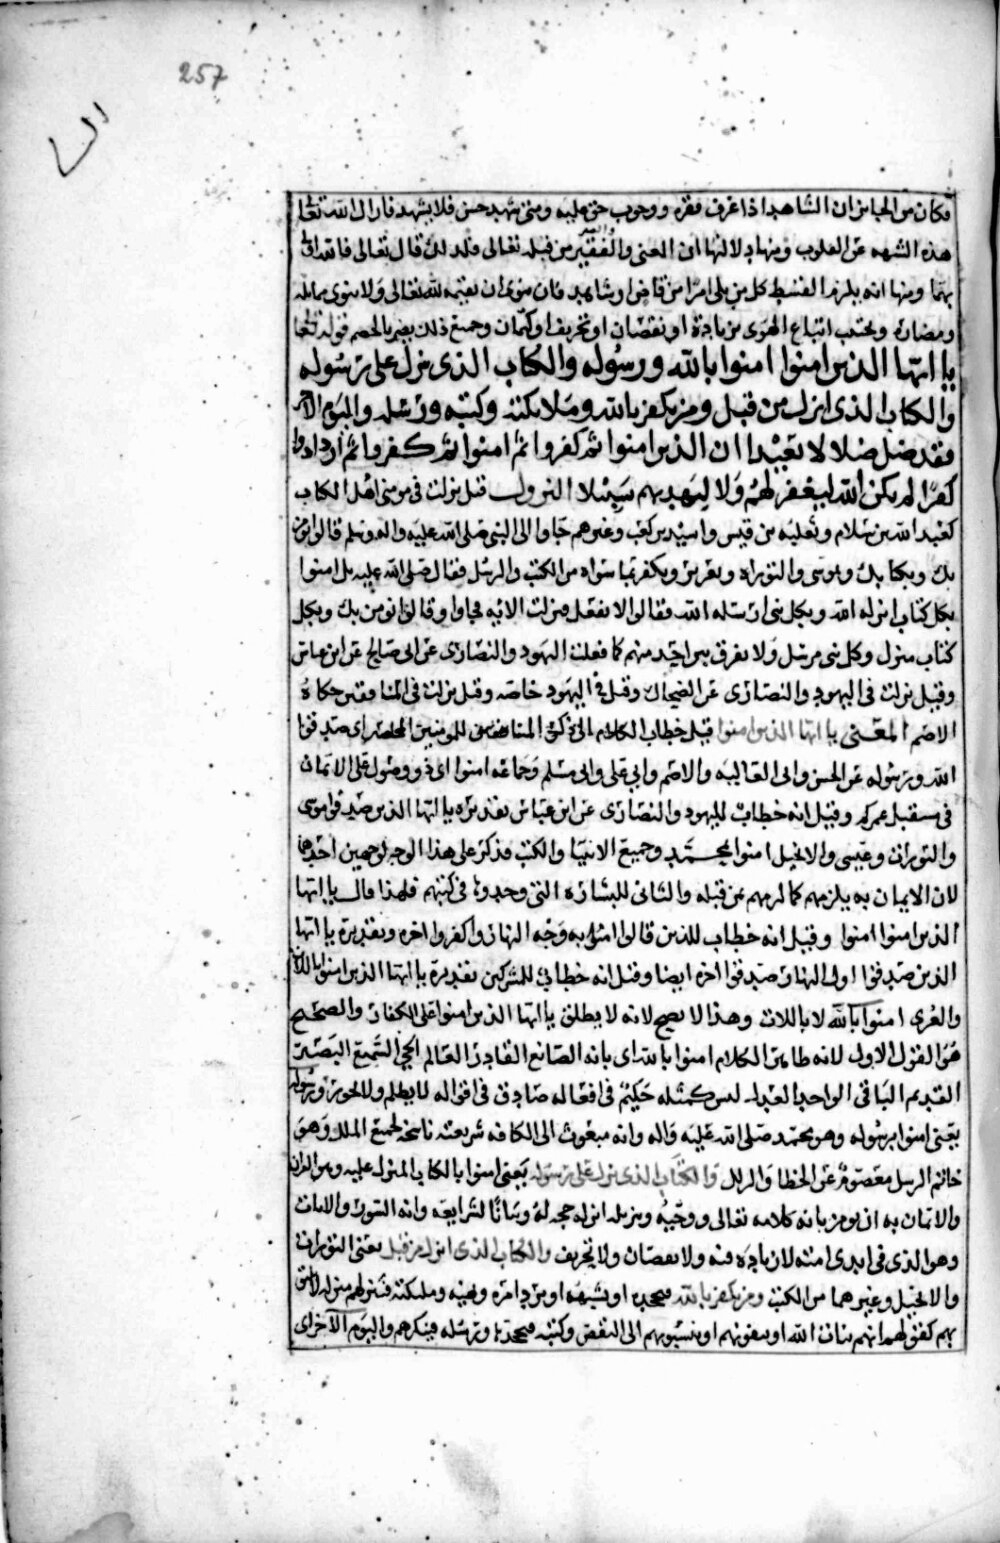 257
النسا
فكان من الجايز ان الشاهد اذا عرف فقره ووجوب حق عليه ومتى شهد حبس فلا يشهد فازال الله تعالى
هذه الشبهه عن القلوب ومنها دلالتها ان الغنى والفقير من قبله تعالى فلذلك قال تعالى فالله اولى
بهما ومنها انه يلزم القسط كل من يلي امرا من قاض او شاهد فان نوى ان نفسه لله تعالى ولا
ومضاره ويجتنب اتباع الهوى من زيادة او نقصان او تحريف او كتمان وجميع ذلك يضر بالخصم قوله تعالى
يا ايها الذين امنوا امنوا بالله ورسوله والكتاب الذي نزل على رسوله
والكتاب الذي انزل من قبل ومن يكفر بالله وملائكته وكتبه ورسله واليوم الآخر
فقد ضل ضلالا بعيدا ان الذين امنوا ثم كفروا ثم امنوا ثم كفروا ثم ازدادوا
كفرا لم يكن الله ليغفر لهم ولا ليهديهم سبيلا النزول قيل نزلت في مومني اهل الكتاب
كعبد الله بن سلام وثعلبه بن قيس واسيد بن كعب وغيرهم جاوا الى النبي صلى الله عليه واله وسلم قالوا نومن
بك وبكتابك وبموسى والتوراه وبعزير ونكفر بما سواه من الكتب والرسل فقال صلى الله عليه بل امنوا
بكل كتاب انزله الله وبكل نبي ارسله الله فقالوا لا نفعل فنزلت الايه فجاوا وقالوا نومن بك وبكل
كتاب منزل وكل نبي مرسل ولا نفرق بين احد منهم كما فعلت اليهود والنصارى عن ابي صالح عن ابن عباس
وقيل نزلت في اليهود والنصارى عن الضحاك وقيل في اليهود خاصه وقيل نزلت في المنافقين حكاه
الاصم المعنى يا ايها الذين امنوا قيل خطاب الكلام الى ذكر المنافقين للمومنين المخلصين اي صدقوا
الله ورسوله عن الحسن وابي العاليه والاصم وابي علي وابي مسلم وجماعه امنوا اي دوموا على الايمان
في مستقبل عمركم وقيل انه خطاب لليهود والنصارى عن ابن عباس تقديره يا ايها الذين صدقوا موسى
والتوراه وعيسى والانجيل امنوا بمحمد وجميع الانبيا والكتب فذكر على هذا الوجه لوجهين احدهما
لان الايمان به يلزمهم كما لزمهم بمن قبله والثاني للبشاره التي وجدوها في كتبهم فلهذا قال يا ايها
الذين امنوا امنوا وقيل انه خطاب للذين قالوا امنوا به وجه النهار واكفروا اخره وتقديره يا ايها
الذين صدقوا اول النهار صدقوا اخره ايضا وقيل انه خطاب للمشركين تقديره يا ايها الذين امنوا باللات
والعزى امنوا بالله لا باللات وهذا لا يصح لانه لا يطلق يا ايها الذين امنوا على الكفار والصحيح
هو القول الاول لانه ظاهر الكلام امنوا بالله اي بانه الصانع القادر العالم الحي السميع البصير
القديم الباقي الواحد العدل ليس كمثله حكيم في افعاله صادق في اقواله لا يظلم ولا يجوز ورسوله
يعني امنوا برسوله وهو محمد صلى الله عليه واله وانه مبعوث الى الكافه شريعته ناسخه لجميع الملل وهو
خاتم الرسل معصوم عن الخطا والزلل والكتاب الذي نزل على رسوله يعني امنوا بالكتاب المنزل عليه وهو القران
والايمان به ان يومن بانه كلامه تعالى ووحيه وتنزيله انزله حجه له وبيانا لشرايعه وانه السور والايات
وهو الذي في ايدي امته لا زيادة فيه ولا نقصان ولا تحريف والكتاب الذي انزل من قبل يعني التوراه
والانجيل وغيرهما من الكتب ومن يكفر بالله فيجحده او يشبهه او يرد امره ونهيه وملئكته فينزلهم منزله لا تليق
بهم كقولهم انهم بنات الله او ينسبونهم الى النقص وكتبه فيجحدها ورسله فينكرهم واليوم الآخر اي